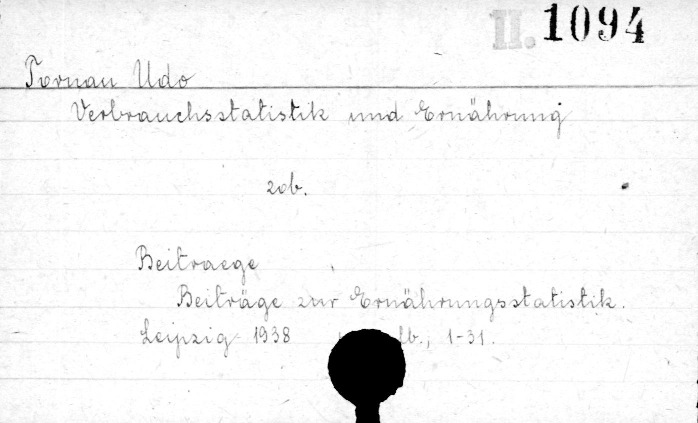 II. 1094
Tornau Udo
Verbrauchsstatistik und Ernährung
zob.
Beitraege
Beiträge zur Ernährungsstatistik.
Leipzig 1938 1-31.